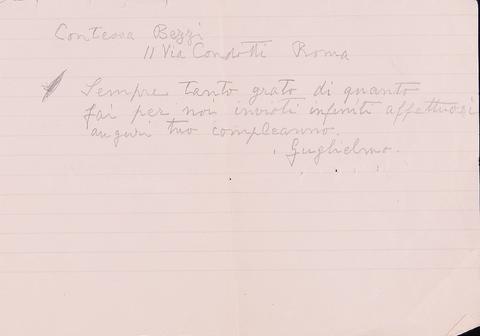 Contessa Bezzi
11 Via Condotti Roma
Sempre tanto grato di quanto
fai per noi invioti infiniti affettuosi
auguri tuo compleanno.
Guglielmo.